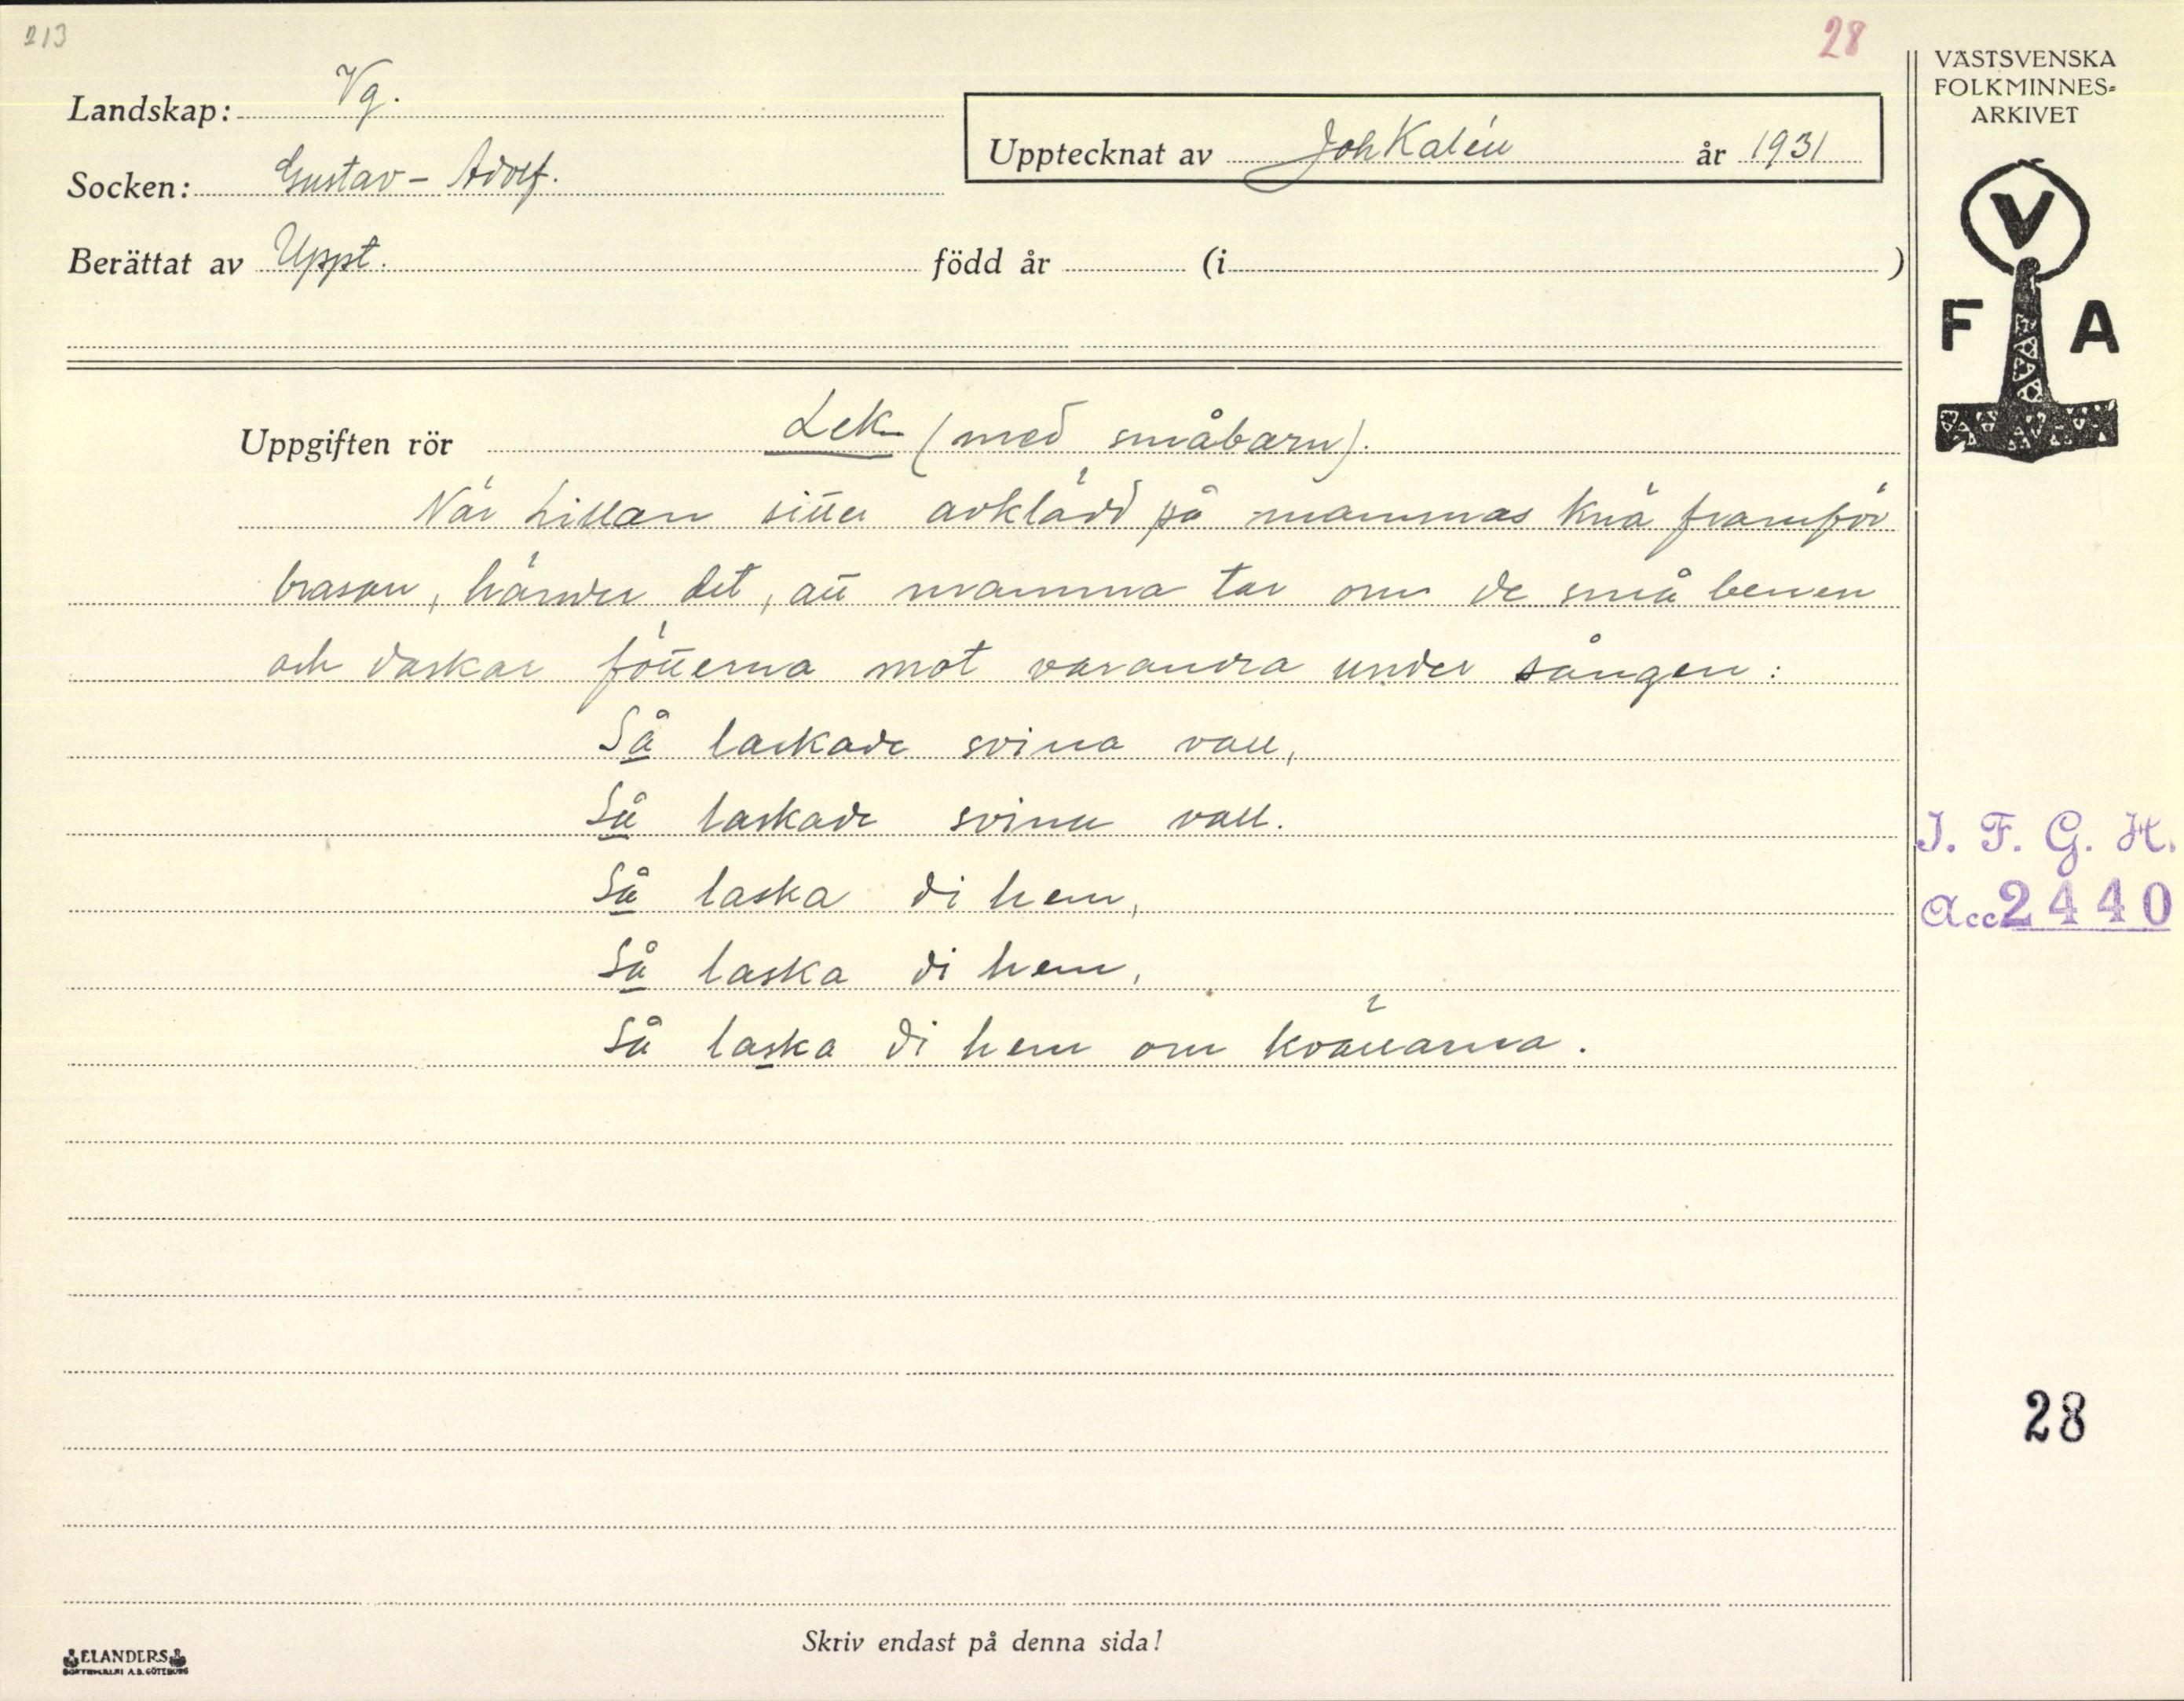 213
28
VÄSTSVENSKA
FOLKMINNES-
ARKIVET
Landskap: Vg.
Upptecknat av Joh Kalén år 1931
Socken: Gustav-Adolf.
Berättat av Uppt. född år (i )
V
F A
Uppgiften rör Lek (med småbarn).
När Lillan sitter avklädd på mammas knä framför
brasan, händer det, att mamma tar om de små benen
och daskar fötterna mot varandra under sången:
Så laskade svina vall,
Så laskade svina vall.
Så laska di hem,
Så laska di hem,
Så laska di hem om kvällarna.
I. F. G. H.
Acc 2440
28
Skriv endast på denna sida!
ELANDERS
BOKTRYCKERI A.B. GÖTEBORG